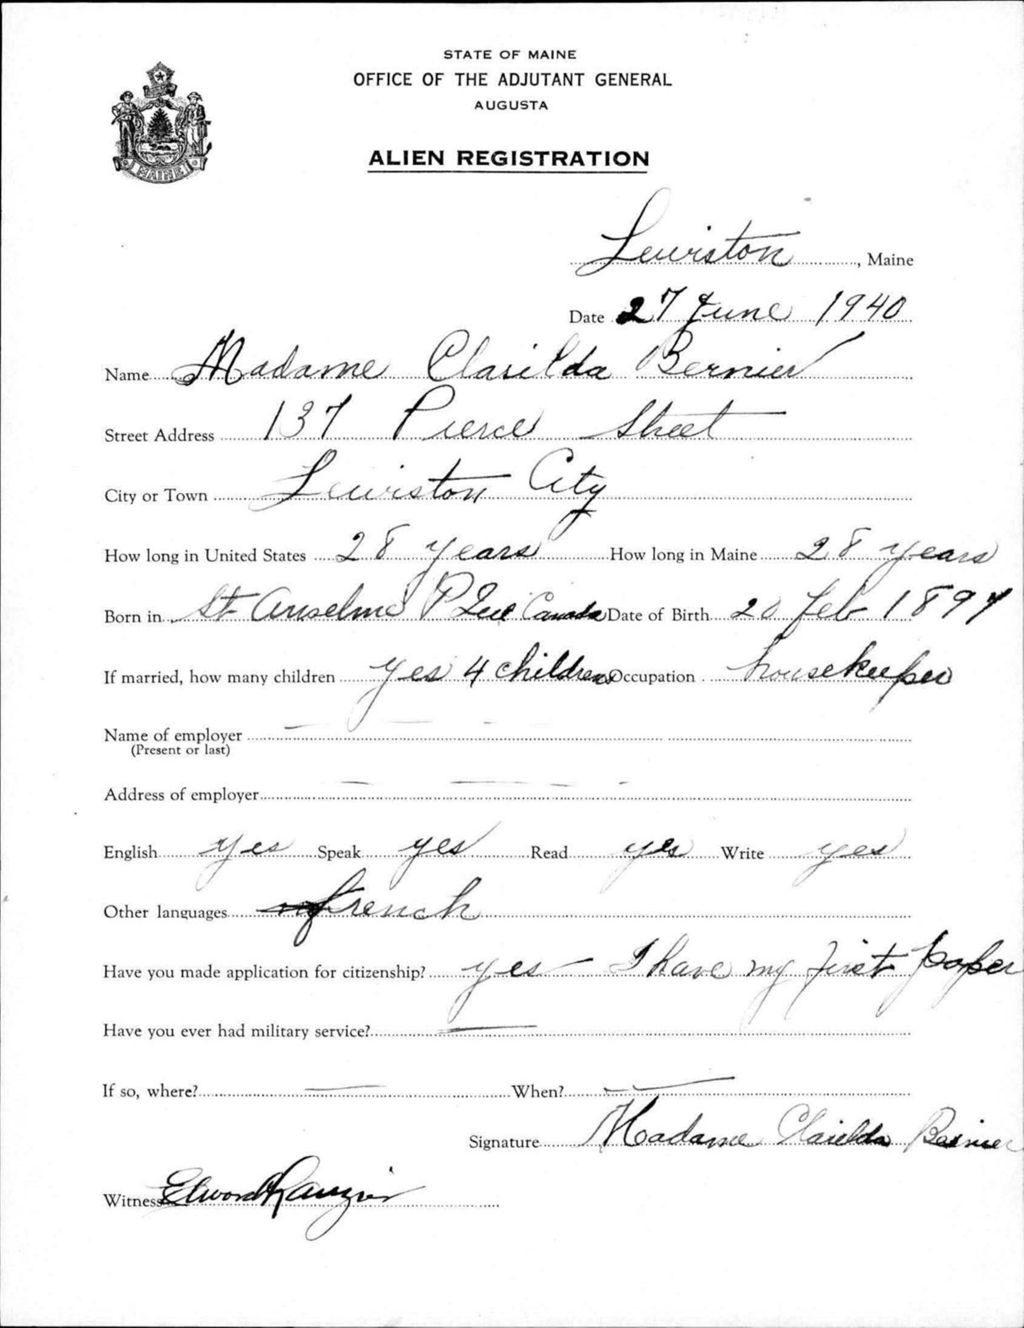 STATE OF MAINE
OFFICE OF THE ADJUTANT GENERAL
AUGUSTA
ALIEN REGISTRATION
MAINE
Lewiston, Maine
Date 27 June 1940
Name Madame Clarilda Bernier
Street Address 137 Pierce Street
City or Town Lewiston City
How long in United States 28 years How long in Maine 28 years
Born in St Anselme P Que Canada Date of Birth 20 Feb 1897
If married, how many children yes 4 children Occupation housekeeper
Name of employer —
(Present or last)
Address of employer — — -
English yes Speak yes Read yes Write yes
Other languages french
Have you made application for citizenship? yes — I have my first paper
Have you ever had military service? —
If so, where? — When? —
Signature Madame Clarilda Bernier
Witness